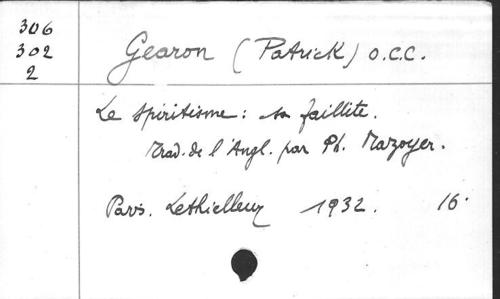 306
302
2
Gearon (Patrick) O.C.C.
Le spiritisme: sa faillite.
Trad. de l'Angl. par Ph. Mazoyer.
Paris. Lethielleux 1932. 16°